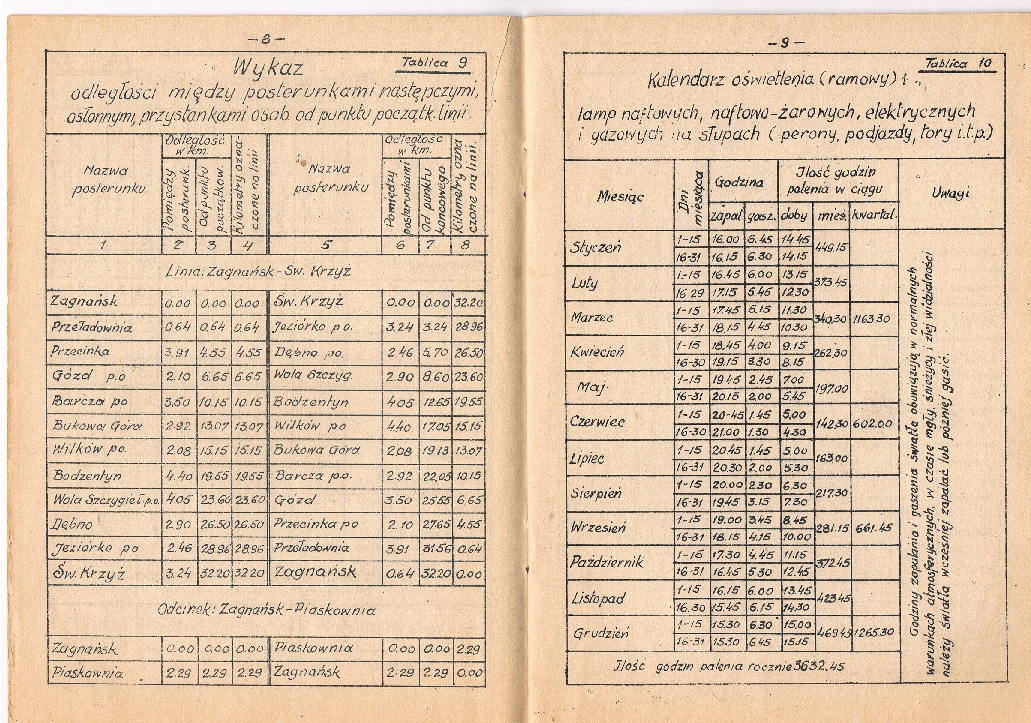 – 8 –
Tablica 9
Wykaz
odległości między posterunkami następczymi,
osłonnymi, przystankami osob. od punktu początk. linii.
Nazwa posterunku | Odległość w km. Pomiędzy posterunk. | Od punktu początkow. | Kilometry ozna- czone na linii | Nazwa posterunku | Odległość w km. Pomiędzy posterunkami | Od punktu końcowego | Kilometry ozna czone na linii.
1 2 3 4 5 6 7 8
Linia: Zagnańsk – Św. Krzyż
Zagnańsk 0.00 0.00 0.00 Św. Krzyż 0.00 0.00 32.20
Przeładownia 0.64 0.64 0.64 Jeziórko p.o. 3.24 3.24 28.96
Przecinka 3.91 4.55 4.55 Dębno po. 2.46 5.70 26.50
Gózd p.o 2.10 6.65 6.65 Wola Szczyg. 2.90 8.60 23.60
Barcza po 3.50 10.15 10.15 Bodzentyn 4.05 12.65 19.55
Bukowa Góra 2.92 13.07 13.07 Wilków po 4.40 17.05 15.15
Wilków po. 2.08 15.15 15.15 Bukowa Góra 2.08 19.13 13.07
Bodzentyn 4.40 19.55 19.55 Barcza p.o. 2.92 22.05 10.15
Wola Szczygieł p.o. 4.05 23.60 23.60 Gózd 3.50 25.55 6.65
Dębno 2.90 26.50 26.50 Przecinka po 2.10 27.65 4.55
Jeziórko po 2.46 28.96 28.96 Przeładownia 3.91 31.56 0.64
Św. Krzyż 3.24 32.20 32.20 Zagnańsk 0.64 32.20 0.00
Odcinek: Zagnańsk – Piaskownia
Zagnańsk 0.00 0.00 0.00 Piaskownia 0.00 0.00 2.29
Piaskownia 2.29 2.29 2.29 Zagnańsk 2.29 2.29 0.00
– 9 –
Tablica 10
Kalendarz oświetlenia (ramowy)
lamp naftowych, naftowo-żarowych, elektrycznych
i gazowych na słupach ( perony, podjazdy, tory i.t.p.)
Miesiąc | Dni miesiąca | Godzina | Ilość godzin palenia w ciągu | Uwagi
zapal. gasz. doby mies. kwartal.
Styczeń 1-15 16.00 6.45 14.45 449.15
16-31 16.15 6.30 14.15
Luty 1-15 16.45 6.00 13.15 373.45
16-29 17.15 5.45 12.30
Marzec 1-15 17.45 5.15 11.30 340.30 1163.30
16-31 18.15 4.45 10.30
Kwiecień 1-15 18.45 4.00 9.15 262.30
16-30 19.15 3.30 8.15
Maj 1-15 19.45 2.45 7.00 197.00
16-31 20.15 2.00 5.45
Czerwiec 1-15 20-45 1.45 5.00 142.30 602.00
16-30 21.00 1.30 4.30
Lipiec 1-15 20.45 1.45 5.00 163.00
16-31 20.30 2.00 5.30
Sierpień 1-15 20.00 2.30 6.30 217.30
16-31 19.45 3.15 7.30
Wrzesień 1-15 19.00 3.45 8.45 281.15 661.45
16-31 18.15 4.15 10.00
Październik 1-15 17.30 4.45 11.15 372.45
16-31 16.45 5.30 12.45
Listopad 1-15 16.15 6.00 13.45 423.45
16.30 15.45 6.15 14.30
Grudzień 1-15 15.30 6.30 15.00 469.45 1265.30
16-31 15.30 6.45 15.15
Ilość godzin palenia rocznie 3632.45
Godziny zapalania i gaszenia światła obowiązują w normalnych
warunkach atmosferycznych, w czasie mgły, śnieżycy i złej widzialności
należy światła wcześniej zapalać lub później gasić.